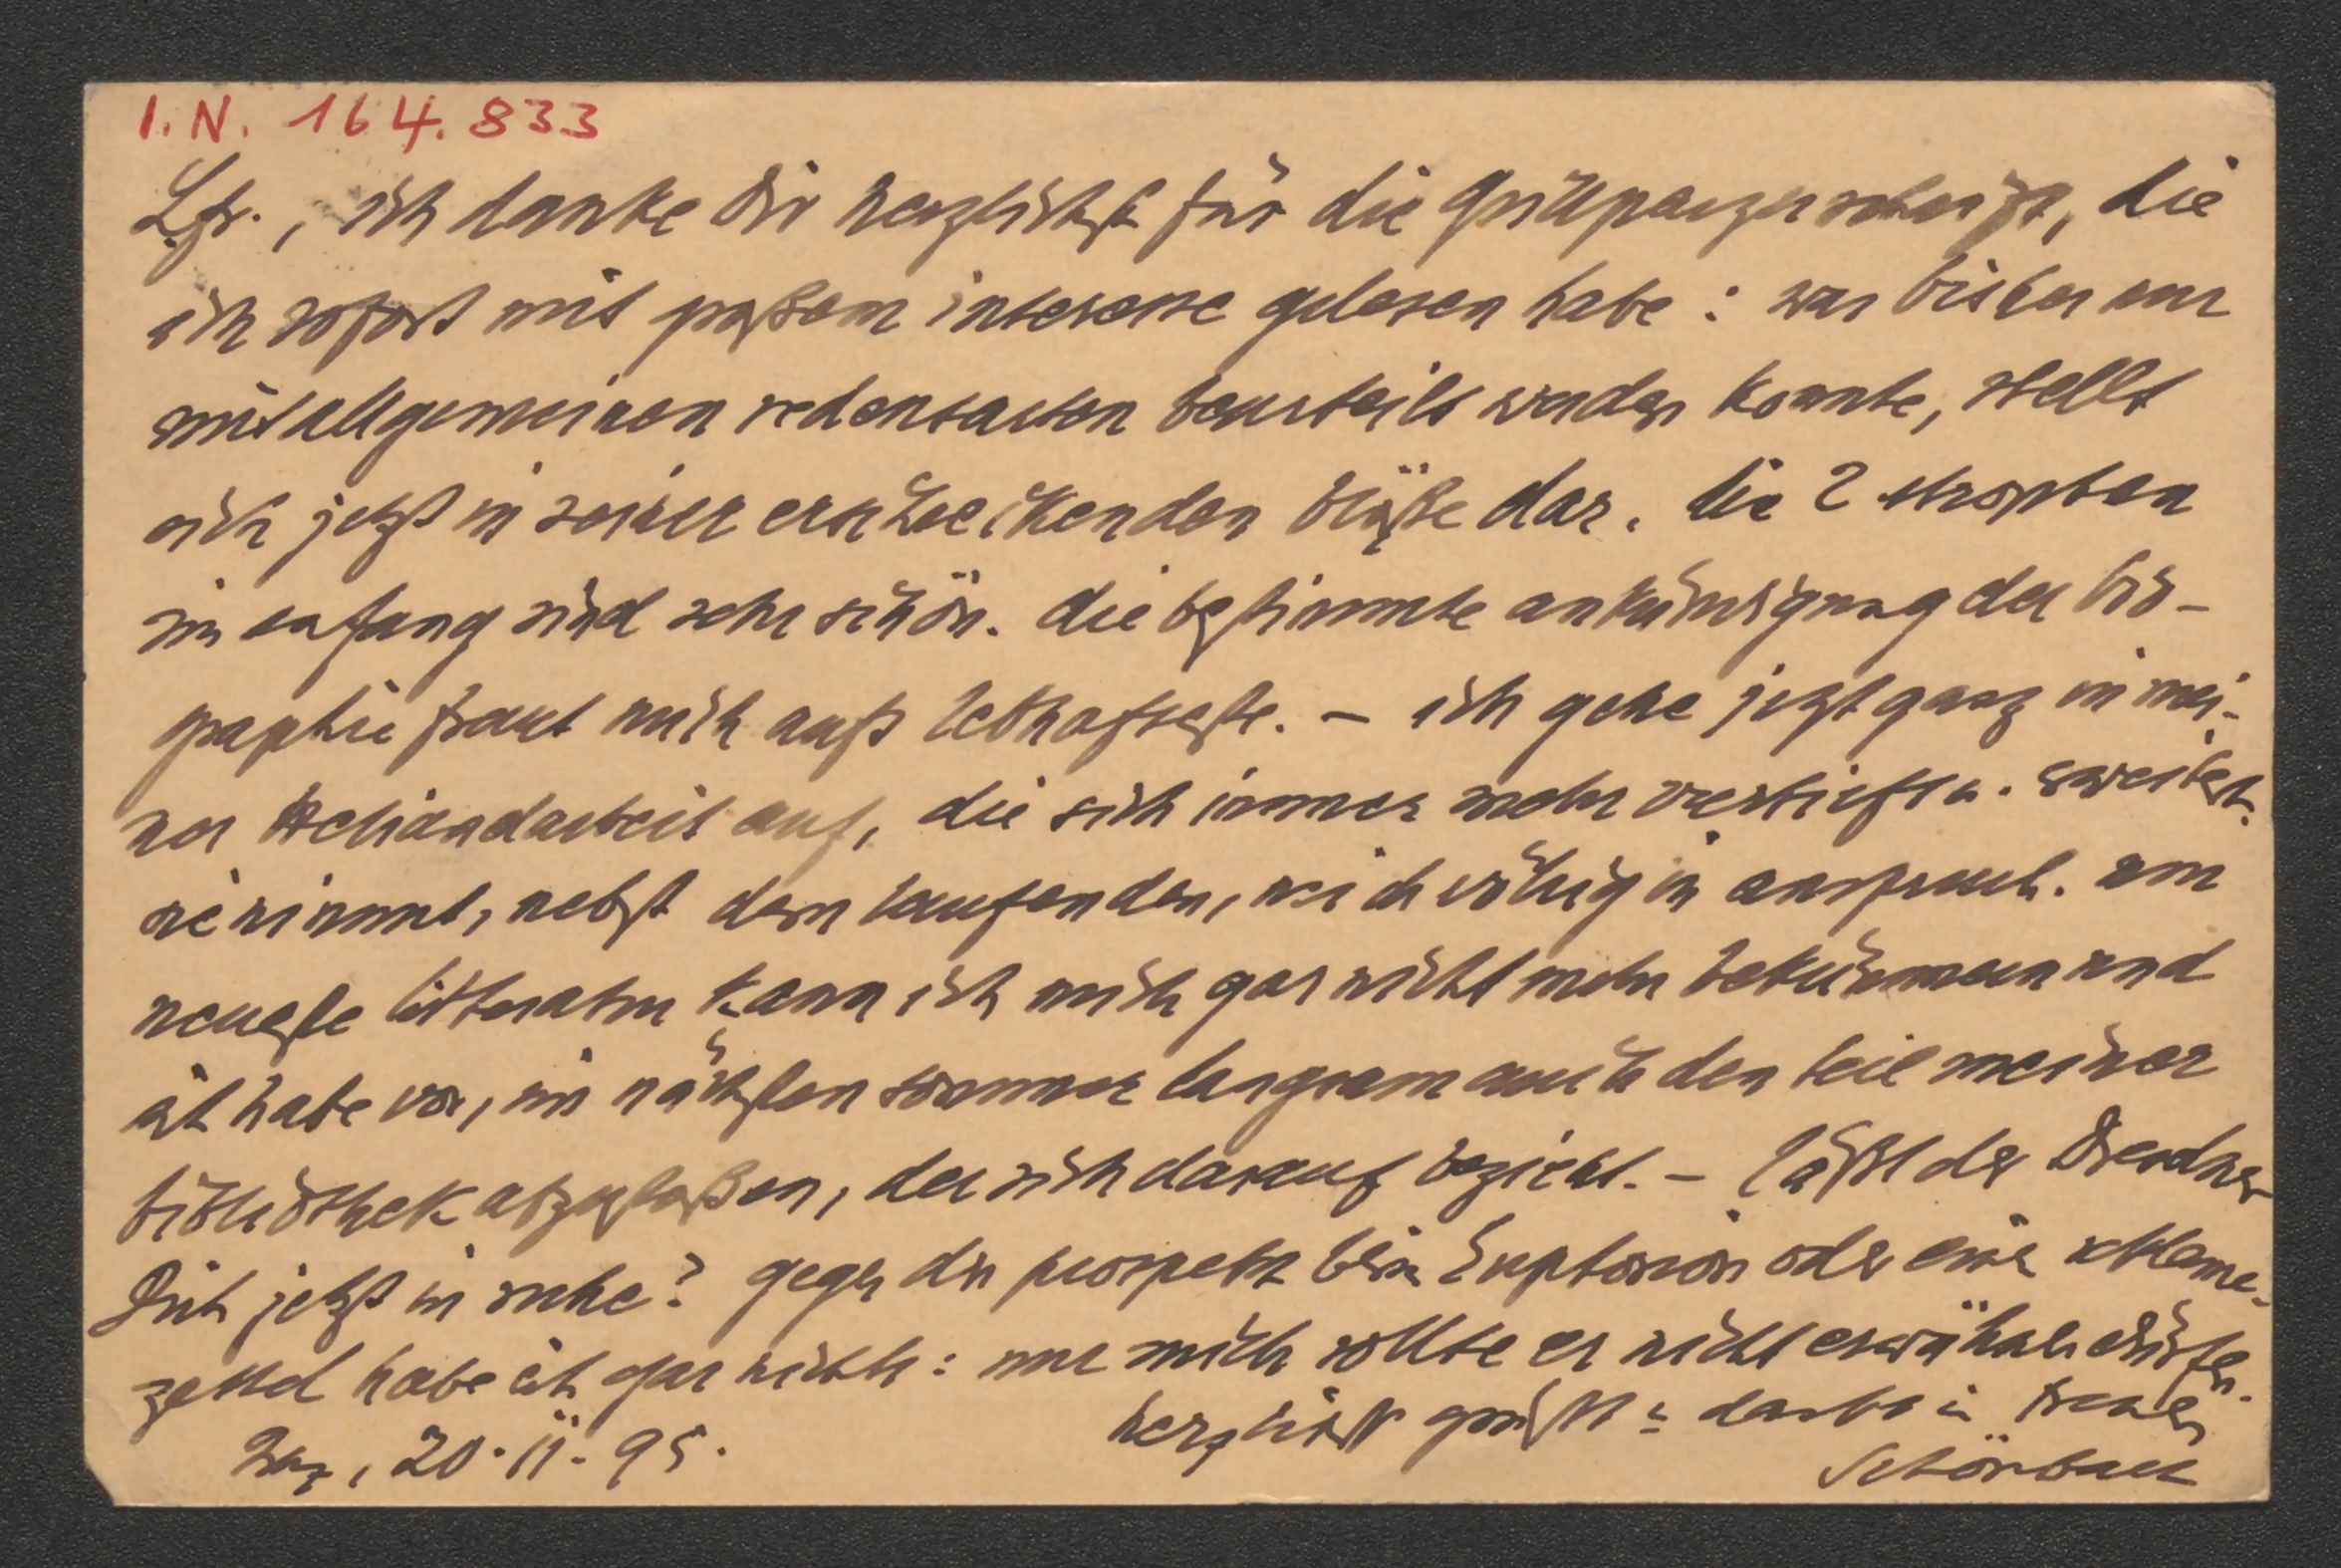 I. N. 164.833
Lfr., ich danke Dir herzlichst für die Grillparzerschrift, die
ich sofort mit großem interesse gelesen habe: was bisher nur
mit allgemeinen redensarten beurteilt werden konnte, stellt
sich jetzt in seiner erschreckenden blöße dar. die 2 strophen
im anfang sind sehr schön. die bestimmte ankündigung der bio-
graphie freut mich aufs lebhafteste. – ich gehe jetzt ganz in mei-
ner Heliandarbeit auf, die sich immer mehr vertieft u. erweitert.
sie nimmt, nebst dem laufenden, mich völlig in anspruch. um
neueste litteratur kann ich mich gar nicht mehr bekümmern und
ich habe vor, im nächsten sommer langsam auch den teil meiner
bibliothek abzustoßen, der sich darauf bezieht. – läßt der Dresdner
Dich jetzt in ruhe? gegen den prospekt beim Euphorion oder eine reklame-
zettel habe ich gar nichts: nur mich sollte er nicht erwähnen dürfen.
herzlichst grüßt u. dankt in treuen
Graz, 20. 11. 95.
Schönbach